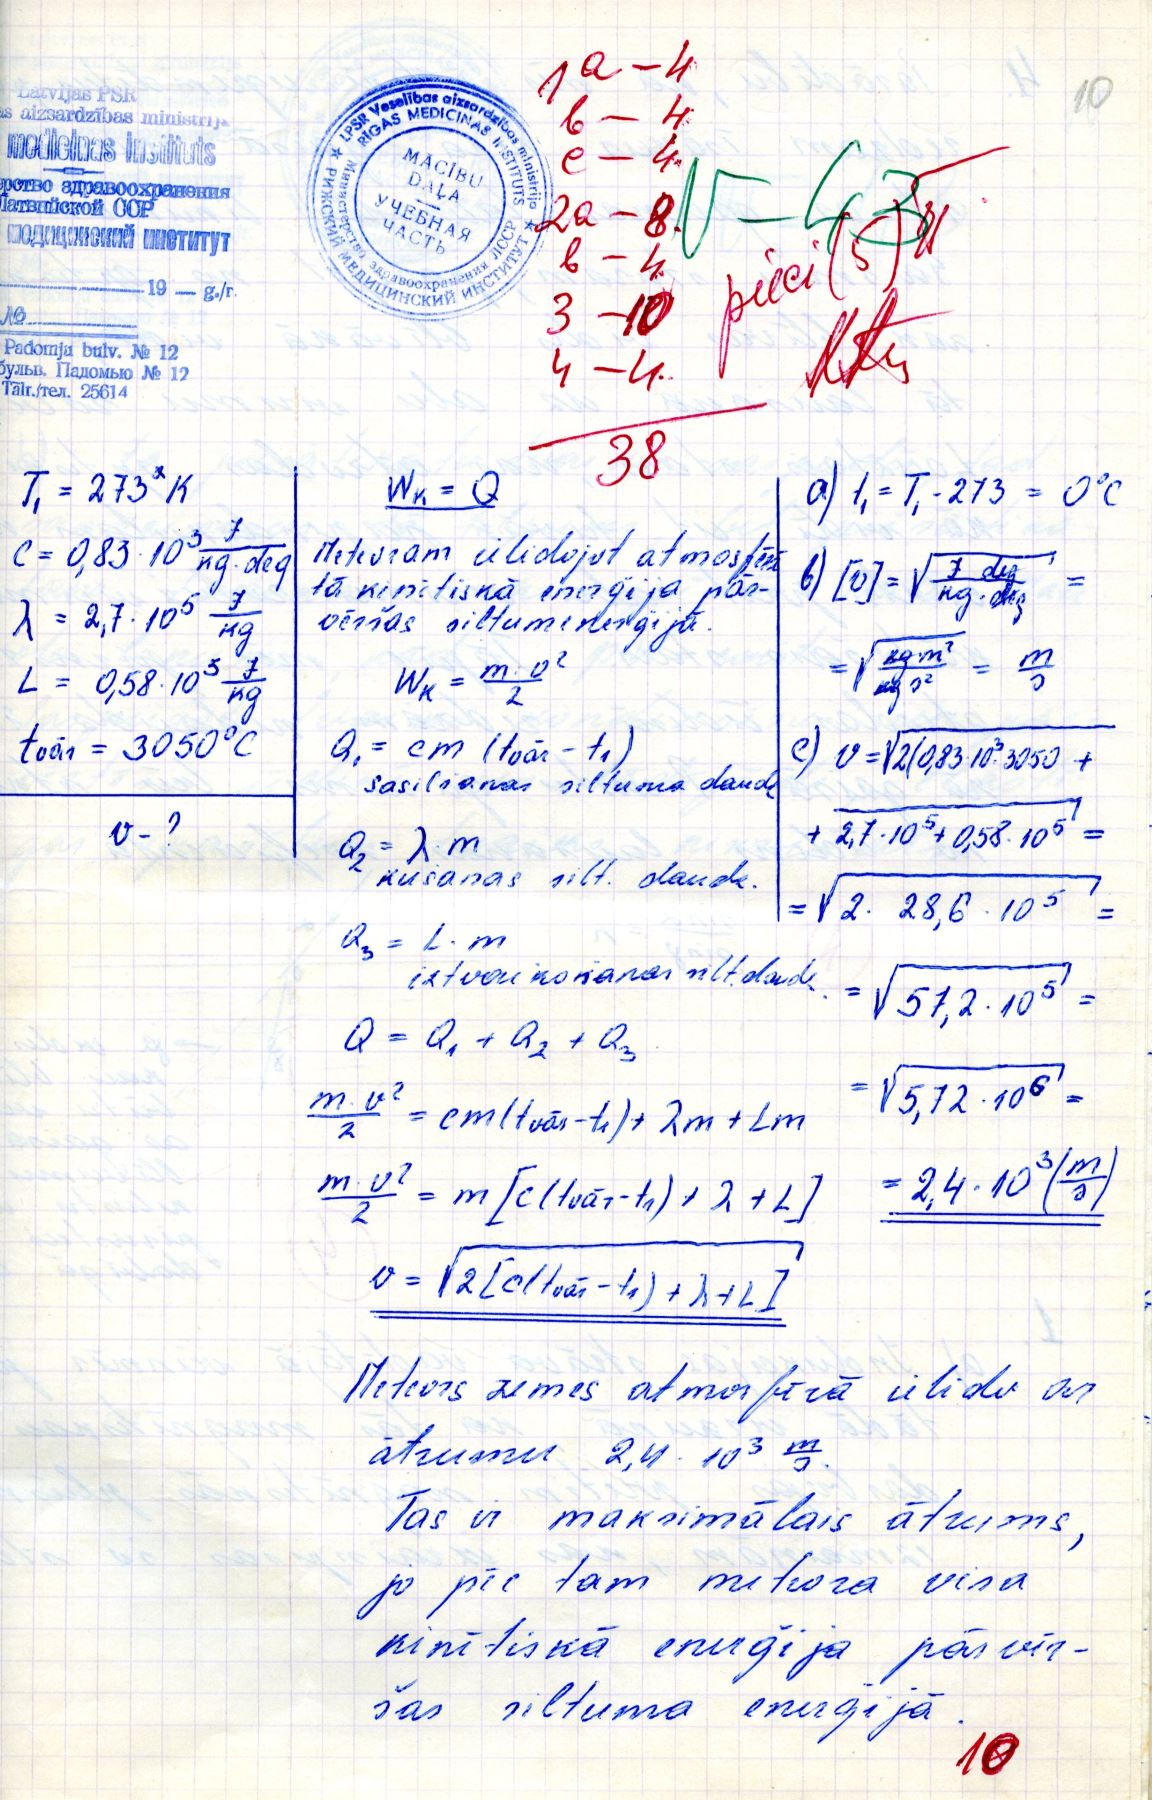 Latvijas PSR
as aizsardzības ministrija
medicinas instituts
ерство здравоохранения
Латвийской ССР
медицинский институт
19 — g./г.
№
Padomju bulv. № 12
бульв. Падомью № 12
Tālr./тел. 25614
★ LPSR Veselības aizsardzības ministrija ★
RĪGAS MEDICINAS INSTITUTS
Министерство здравоохранения ЛССР
РИЖСКИЙ МЕДИЦИНСКИЙ ИНСТИТУТ
MĀCĪBU
DAĻA
УЧЕБНАЯ
ЧАСТЬ
10
1a – 4
b – 4
c – 4
2a – 8
b – 4
3 – 10
4 – 4
38
V – 43
pieci (5)
T₁ = 273°K
c = 0,83 · 10³ J/kg·deg
λ = 2,7 · 10⁵ J/kg
L = 0,58 · 10⁵ J/kg
tvār = 3050°C
v – ?
Wk = Q
Meteoram ielidojot atmosfērā
tā kinētiskā enerģija pār-
vēršas siltumenerģijā.
Wk = m·v²/2
Q₁ = cm (tvār – t₁)
sasilšanas siltuma daudz.
Q₂ = λ·m
kušanas silt. daudz.
Q₃ = L·m
iztvaikošanas silt. daudz.
Q = Q₁ + Q₂ + Q₃
m·v²/2 = cm(tvār–t₁) + λm + Lm
m·v²/2 = m [c(tvār–t₁) + λ + L]
v = √2[c(tvār–t₁) + λ + L]
a) t₁ = T₁ - 273 = 0°C
b) [v] = √J deg/kg·deg =
= √kg m²/kg s² = m/s
c) v = √2(0,83·10³·3050 +
+ 2,7·10⁵ + 0,58·10⁵ =
= √2 · 28,6 · 10⁵ =
= √57,2 · 10⁵ =
= √5,72 · 10⁶ =
= 2,4 · 10³ (m/s)
Meteors zemes atmosfērā ielido ar
ātrumu 2,4 · 10³ m/s.
Tas ir maksimālais ātrums,
jo pēc tam meteora visa
kinētiskā enerģija pārvēr-
šas siltuma enerģijā.
10